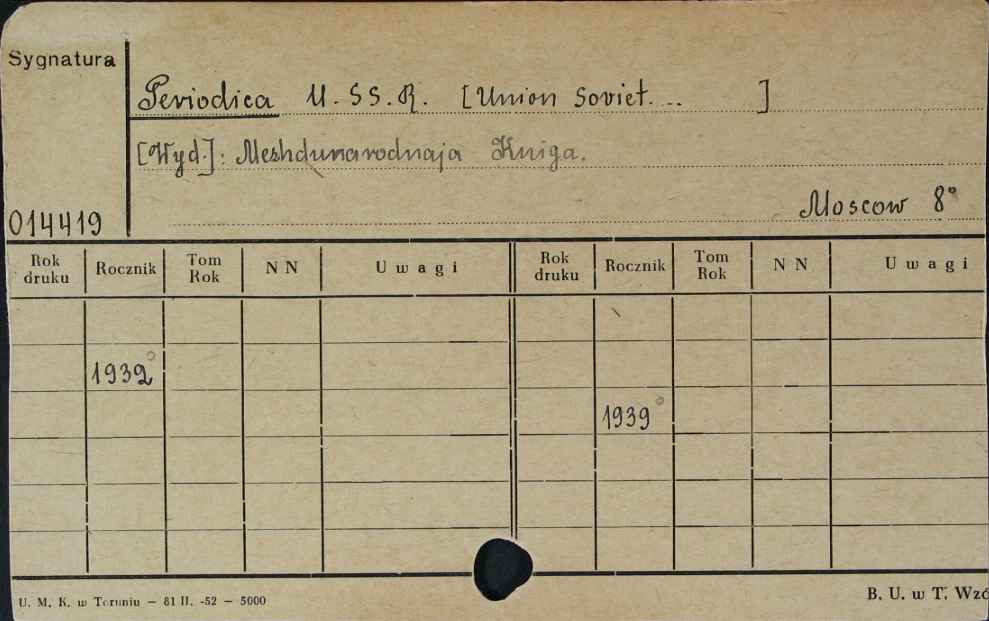 Sygnatura
Periodica U. SS. R. [Union Soviet. .. ]
[Wyd.]: Mezhdunarodnaja Kniga.
Moscow 8°
014419
Rok druku Rocznik Tom Rok N N U w a g i Rok druku Rocznik Tom Rok N N U w a g i
1932°
1939°
U. M. K. w Toruniu — 81 II. -52 — 5000
B. U. w T. Wzó